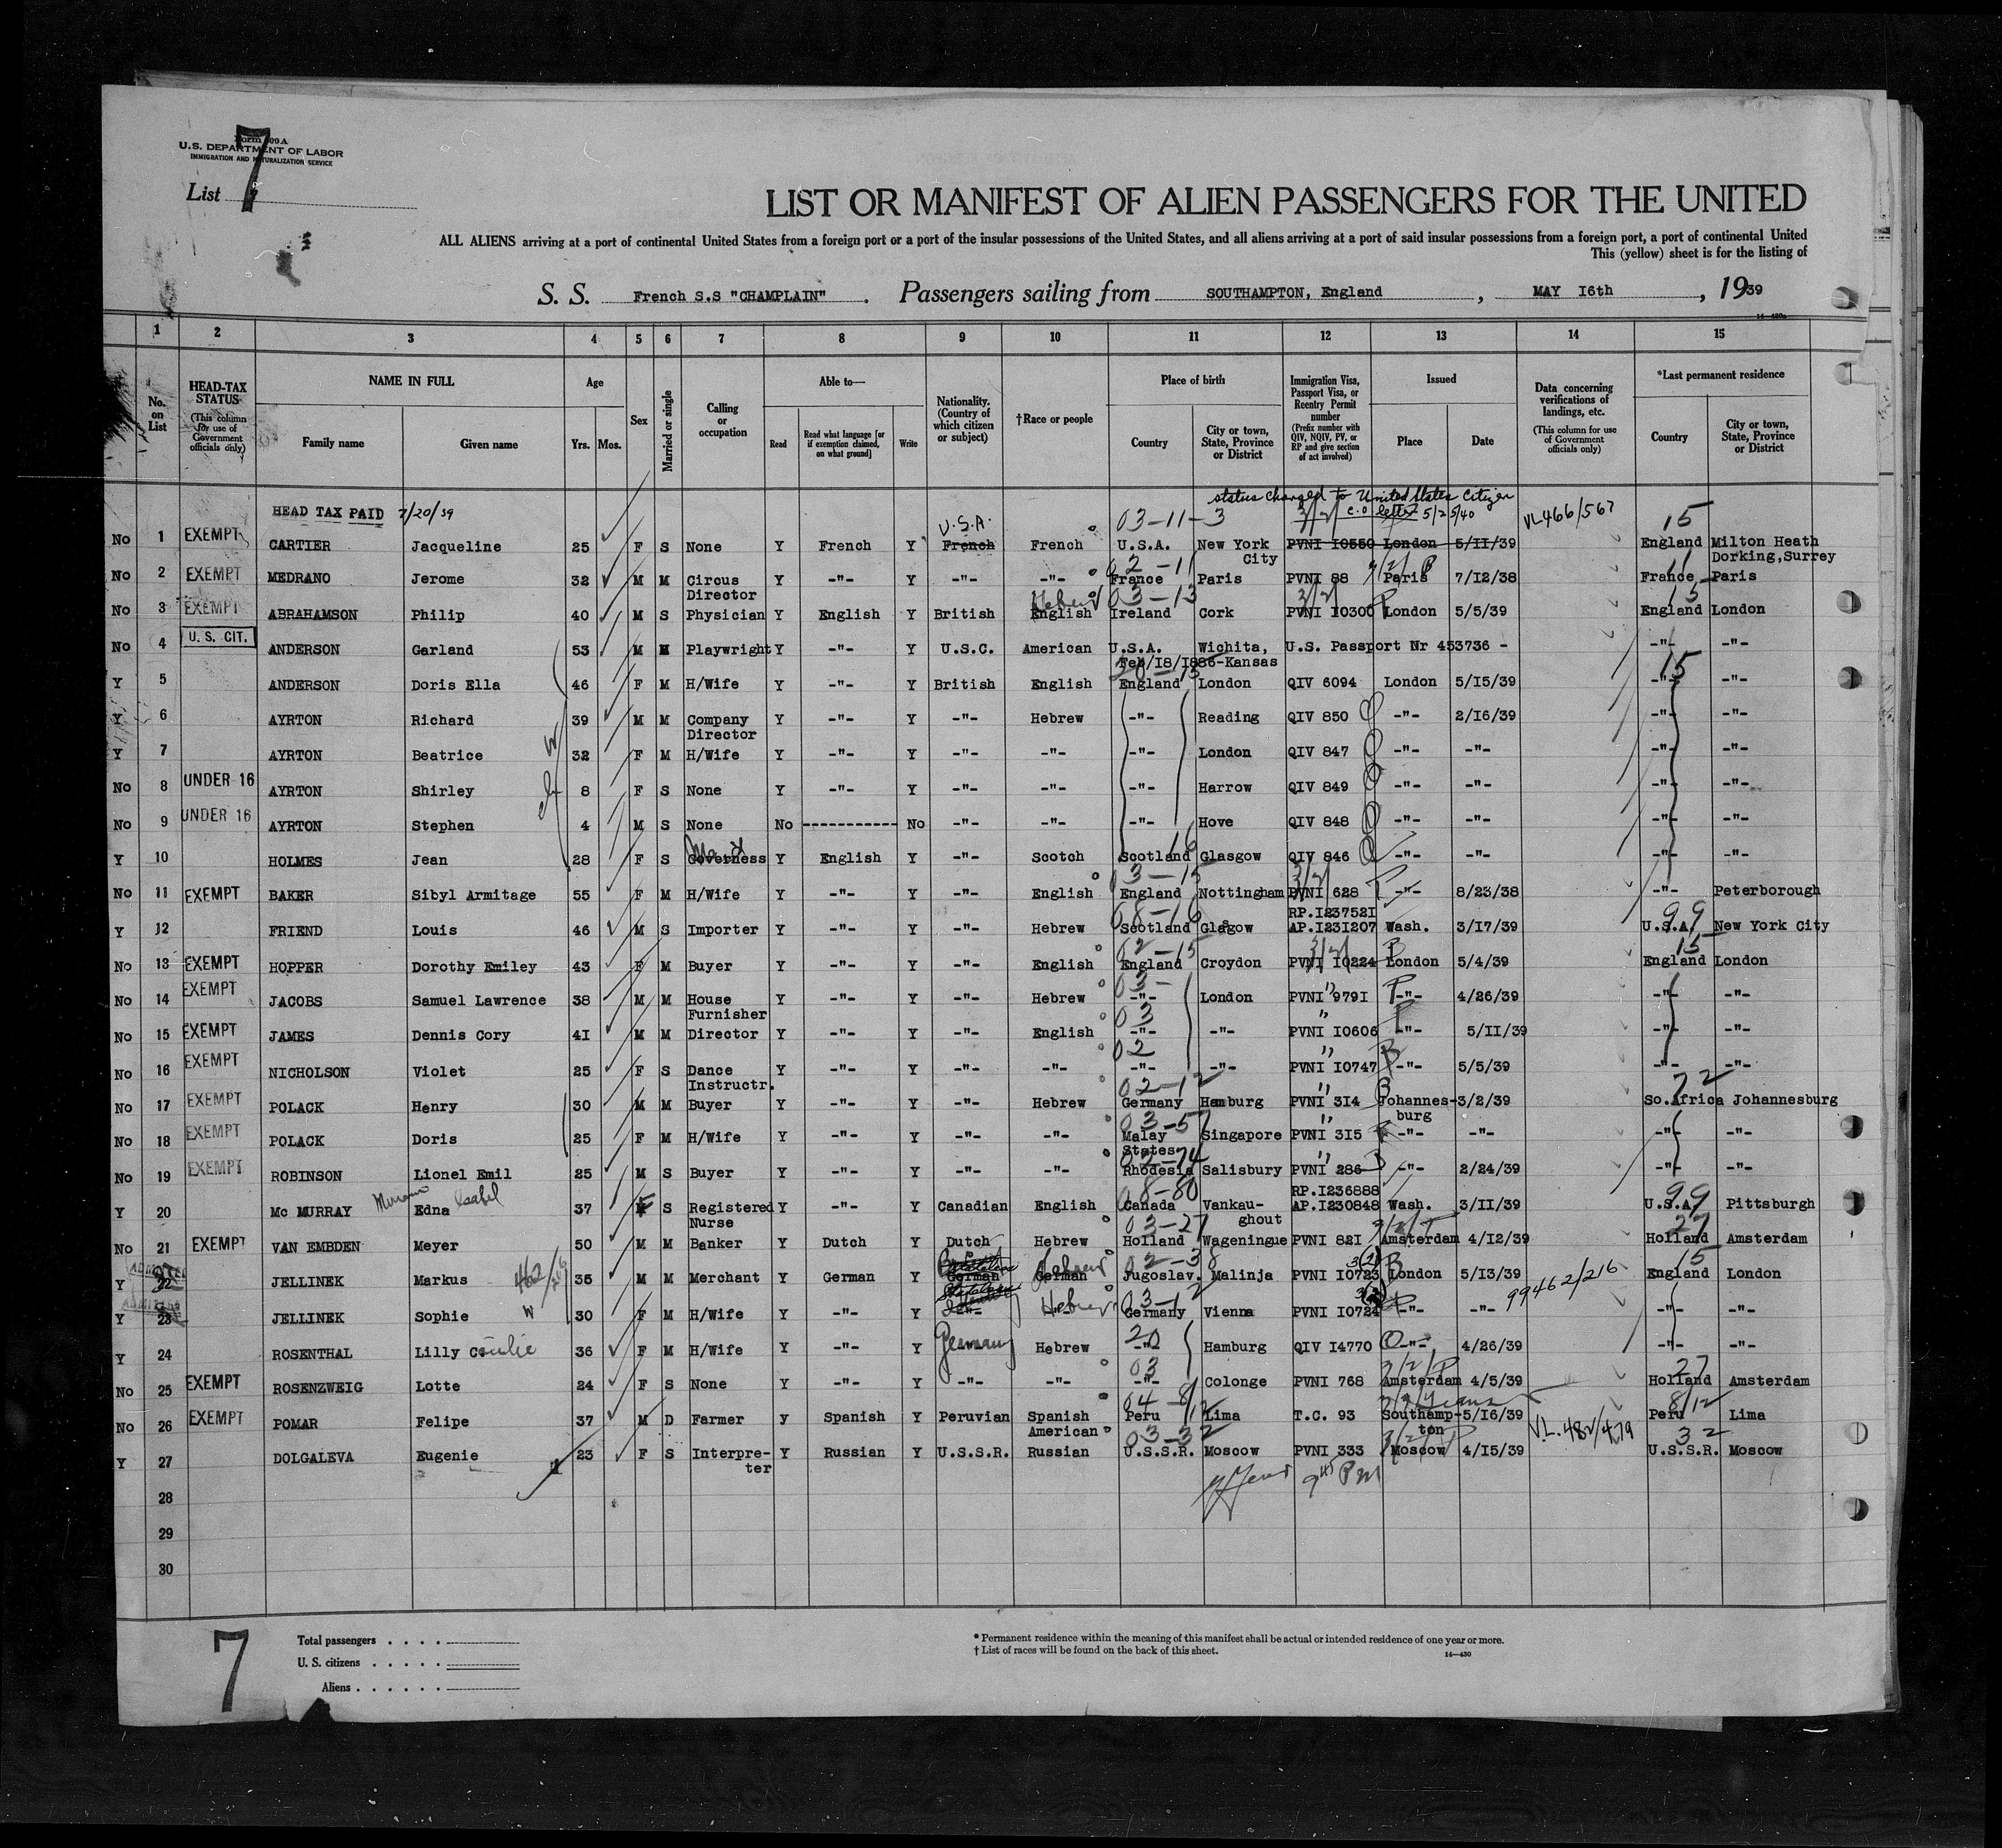 Form 609A
U.S. DEPARTMENT OF LABOR
IMMIGRATION AND NATURALIZATION SERVICE
List 7
LIST OR MANIFEST OF ALIEN PASSENGERS FOR THE UNITED
ALL ALIENS arriving at a port of continental United States from a foreign port or a port of the insular possessions of the United States, and all aliens arriving at a port of said insular possessions from a foreign port, a port of continental United
This (yellow) sheet is for the listing of
S. S. French S.S "CHAMPLAIN". Passengers sailing from SOUTHAMPTON, England, MAY 16th, 1939
14-430
1 2 3 4 5 6 7 8 9 10 11 12 13 14 15
No. on List
HEAD-TAX STATUS (This column for use of Government officials only)
NAME IN FULL Family name Given name
Age Yrs. Mos.
Sex
Married or single
Calling or occupation
Able to— Read Read what language [or if exemption claimed, on what ground] Write
Nationality. (Country of which citizen or subject)
†Race or people
Place of birth Country City or town, State, Province or District
Immigration Visa, Passport Visa, or Reentry Permit number (Prefix number with QIV, NQIV, PV, or RP and give section of act involved)
Issued Place Date
Data concerning verifications of landings, etc. (This column for use of Government officials only)
*Last permanent residence Country City or town, State, Province or District
status changed to United States Citizen
HEAD TAX PAID 7/20/39 U.S.A. 03-11-3 3/2/ c.o letter 5/25/40 VL466/567 15
No 1 EXEMPT CARTIER Jacqueline 25 F S None Y French Y French French U.S.A. New York City PVNI I0550 London 5/II/39 England Milton Heath Dorking, Surrey
No 2 EXEMPT MEDRANO Jerome 32 M M Circus Director Y -"- Y -"- -"- France Paris PVNI 88 Paris 7/I2/38 France Paris
No 3 EXEMPT ABRAHAMSON Philip 40 M S Physician Y English Y British English Hebrew Ireland Cork 03-13 PVNI I0300 London 5/5/39 England London 15
No 4 U. S. CIT. ANDERSON Garland 53 M M Playwright Y -"- Y U.S.C. American U.S.A. Wichita, U.S. Passport Nr 453736 - -"- -"-
Feb/I8/I886-Kansas
Y 5 ANDERSON Doris Ella 46 F M H/Wife Y -"- Y British English England London QIV 6094 London 5/I5/39 -"- -"- 15
Y 6 AYRTON Richard 39 M M Company Director Y -"- Y -"- Hebrew -"- Reading QIV 850 -"- 2/I6/39 -"- -"-
Y 7 AYRTON Beatrice 32 F M H/Wife Y -"- Y -"- -"- -"- London QIV 847 -"- -"- -"- -"-
No 8 UNDER 16 AYRTON Shirley 8 F S None Y -"- Y -"- -"- -"- Harrow QIV 849 -"- -"- -"- -"-
No 9 UNDER 16 AYRTON Stephen 4 M S None No ----------- No -"- -"- -"- Hove QIV 848 -"- -"- -"- -"-
Y 10 HOLMES Jean 28 F S Governess Maid Y English Y -"- Scotch Scotland Glasgow QIV 846 -"- -"- -"- -"-
No 11 EXEMPT BAKER Sibyl Armitage 55 F M H/Wife Y -"- Y -"- English England Nottingham 03-15 PVNI 628 -"- 8/23/38 -"- Peterborough
Y 12 FRIEND Louis 46 M S Importer Y -"- Y -"- Hebrew Scotland Glasgow RP.I237521 AP.I231207 Wash. 3/I7/39 U.S.A. New York City 99
No 13 EXEMPT HOPPER Dorothy Emiley 43 F M Buyer Y -"- Y -"- English England Croydon 02-15 PVNI I0224 London 5/4/39 England London 15
No 14 EXEMPT JACOBS Samuel Lawrence 38 M M House Furnisher Y -"- Y -"- Hebrew -"- London 03- PVNI 979I -"- 4/26/39 -"- -"-
No 15 EXEMPT JAMES Dennis Cory 4I M M Director Y -"- Y -"- English -"- -"- 03 PVNI I0606 -"- 5/II/39 -"- -"-
No 16 EXEMPT NICHOLSON Violet 25 F S Dance Instructr. Y -"- Y -"- -"- -"- -"- 02 PVNI I0747 -"- 5/5/39 -"- -"-
No 17 EXEMPT POLACK Henry 30 M M Buyer Y -"- Y -"- Hebrew Germany Hamburg 02-12 PVNI 3I4 Johannes-burg 3/2/39 So.Africa Johannesburg 72
No 18 EXEMPT POLACK Doris 25 F M H/Wife Y -"- Y -"- -"- Malay States Singapore 03-5 PVNI 3I5 -"- -"- -"- -"-
No 19 EXEMPT ROBINSON Lionel Emil 25 M S Buyer Y -"- Y -"- -"- Rhodesia Salisbury PVNI 286 -"- 2/24/39 -"- -"-
Y 20 Mc MURRAY Edna Isabel 37 F S Registered Nurse Y -"- Y Canadian English Canada Vankau-ghout 08-80 RP.I236888 AP.I230848 Wash. 3/II/39 U.S.A. Pittsburgh 99
No 21 EXEMPT VAN EMBDEN Meyer 50 M M Banker Y Dutch Y Dutch Hebrew Holland Wageningue 03-27 PVNI 82I Amsterdam 4/I2/39 Holland Amsterdam 27
Y 22 ADMITTED JELLINEK Markus 35 M M Merchant Y German Y German German Hebrew Jugoslav. Malinja 02-38 PVNI I0723 London 5/I3/39 England London 15
Y 23 ADMITTED JELLINEK Sophie W 30 F M H/Wife Y -"- Y Hebrew Germany Vienna 03-12 PVNI I0724 -"- -"- 99462/216 -"- -"-
Y 24 ROSENTHAL Lilly 36 F M H/Wife Y -"- Y Germany Hebrew -"- Hamburg 20 QIV I4770 -"- 4/26/39 -"- -"-
No 25 EXEMPT ROSENZWEIG Lotte 24 F S None Y -"- Y -"- -"- -"- Colonge 03 PVNI 768 Amsterdam 4/5/39 Holland Amsterdam 27
No 26 EXEMPT POMAR Felipe 37 M D Farmer y Spanish Y Peruvian Spanish American Peru Lima T.C. 93 Southamp-ton 5/I6/39 Peru Lima
Y 27 DOLGALEVA Eugenie 23 F S Interpre-ter Y Russian Y U.S.S.R. Russian U.S.S.R. Moscow 03-32 PVNI 333 Moscow 4/I5/39 VL.482/479 U.S.S.R. Moscow 32
28
29
30
7
Total passengers . . . .
U. S. citizens . . . . .
Aliens . . . . . .
* Permanent residence within the meaning of this manifest shall be actual or intended residence of one year or more.
† List of races will be found on the back of this sheet.
14-430